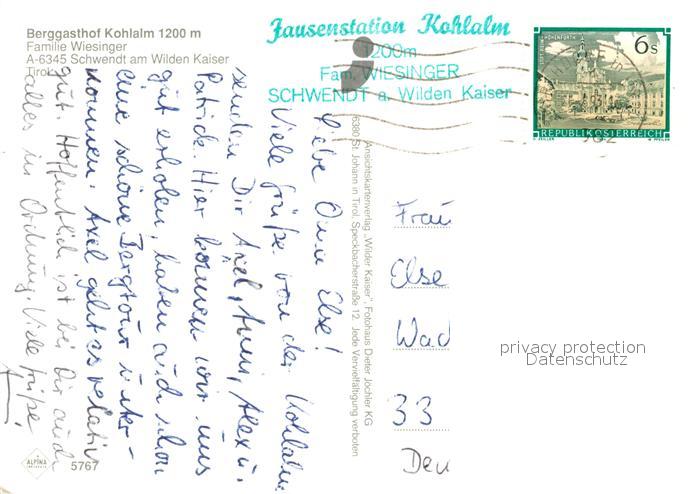 Berggasthof Kohlalm 1200 m
Familie Wiesinger
A-6345 Schwendt am Wilden Kaiser
Tirol
Jausenstation Kohlalm
1200m
Fam. WIESINGER
SCHWENDT a. Wilden Kaiser
6 s
STIFT REIN-HOHENFURTH
REPUBLIK ÖSTERREICH
Liebe Omi Else!
Viele Grüße von der Kohlalm
senden Dir Axel, Anni, Alex u.
Patrick. Hier können wir uns
gut erholen, haben auch schon
eine schöne Bergtour unter-
nommen. Axel geht es relativ
gut. Hoffentlich ist bei Dir auch
alles in Ordnung. Viele Grüße.
Ansichtskartenverlag „Wilder Kaiser", Fotohaus Dieter Jöchler KG
6380 St. Johann in Tirol, Speckbacherstraße 12. Jede Vervielfältigung verboten
Frau
Else
Wad
33
Deu
privacy protection
Datenschutz
ALPINA
5767